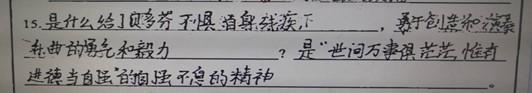 15.是什么给了贝多芬不惧自身残疾,勇于创造和演奏
乐曲的勇气和毅力?是“世间万事俱茫茫,惟有
进德当自强”的自强不息的精神。